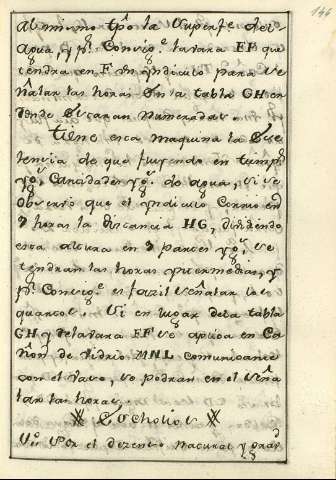 146
al mismo tpõ la superfe del
agua, y pr. Consigte. la vara FF que
tendra en F un yndiculo para se
ñalar las horas en la tabla GH en
donde estaran numeradas.
Tiene esta maquina la
tencia de que fuyendo en
yg.s Canidades yg.s de agua, si se
observó que el yndiculo Corrio en
9 horas la distancia HG, dividiendo
esta altura en 9 partes yg.s se
tendran las horas yntermedias, y
pr. Consigte. es facil señalar los
quartos. Si en lugar de la tabla
GH y de la vara FF se aplica en Ca
ñon de vidrio MNL comunicante
con el vaso, se podran en el seña
lar las horas.
Escholios
Si por el dezenso natural y